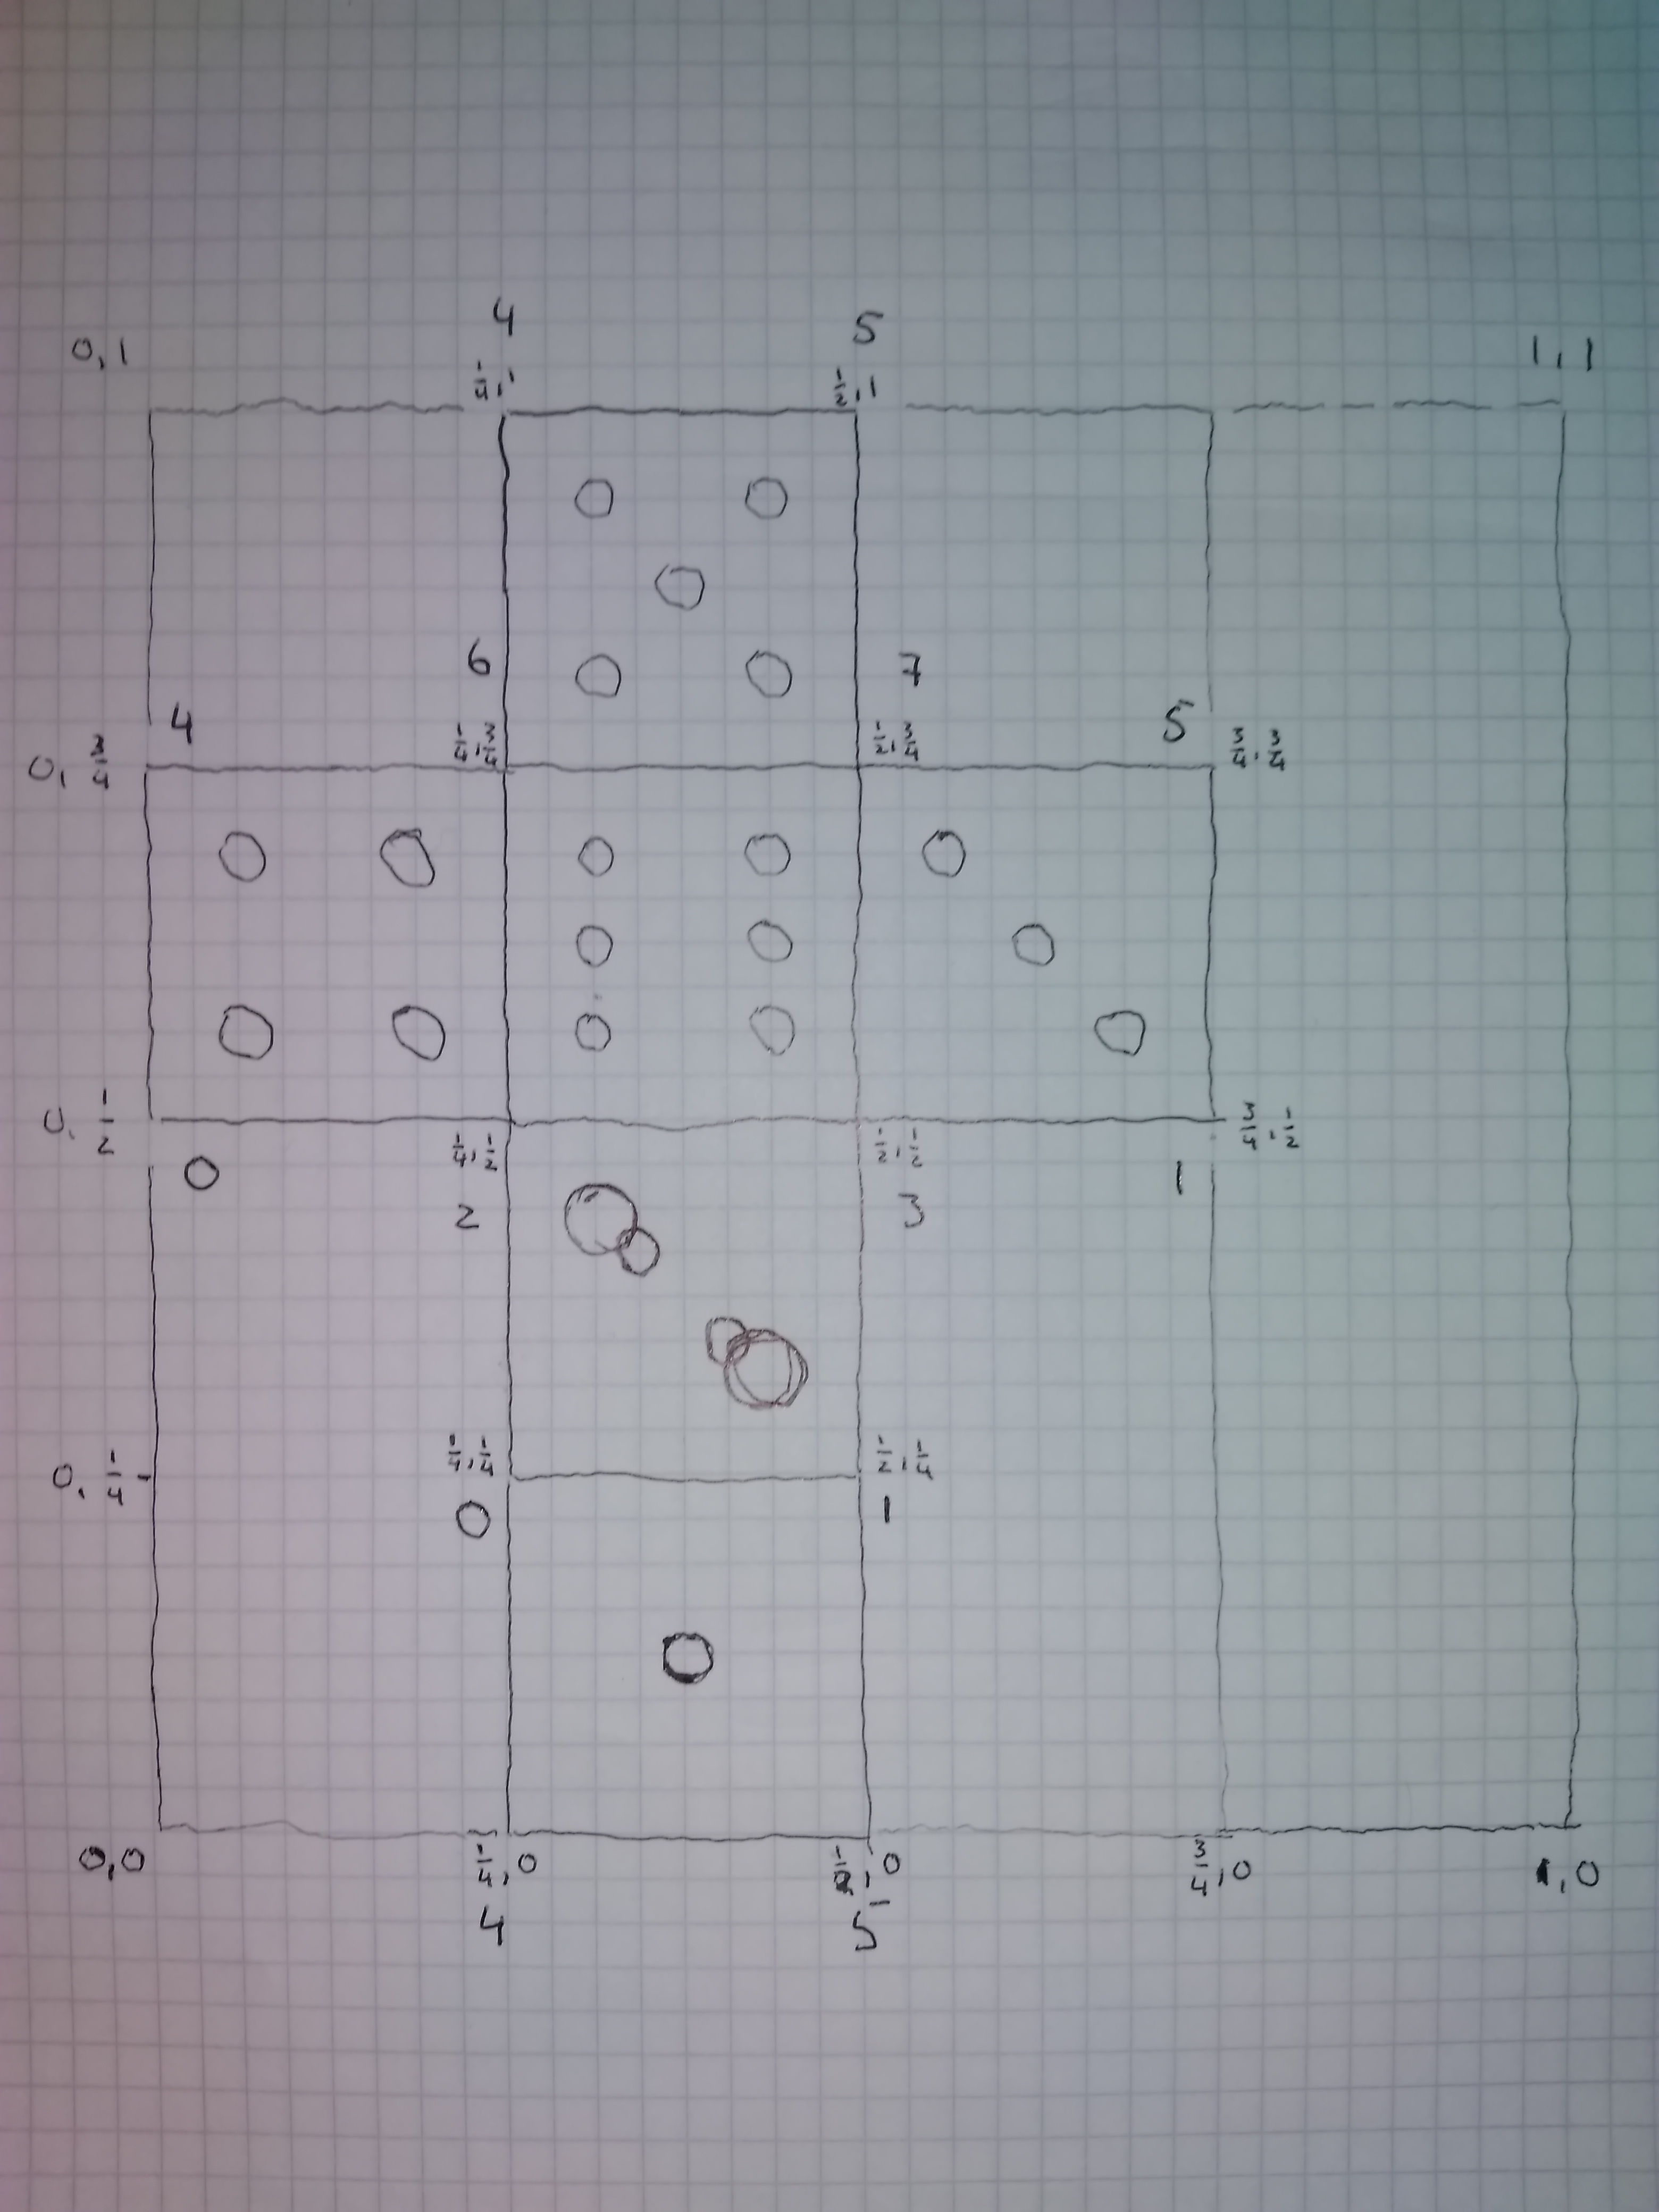 4 5
0,1 1/4,1 1/2,1 1,1
6 7
4 5
0, 3/4 1/4, 3/4 1/2, 3/4 3/4, 3/4
0, 1/2 3/4, 1/2
0 1/4, 1/2 1/2, 1/2 1
2 3
0, 1/4 1/4, 1/4 1/2, 1/4
0 1
0,0 1/4,0 1/2,0 3/4,0 1,0
4 5